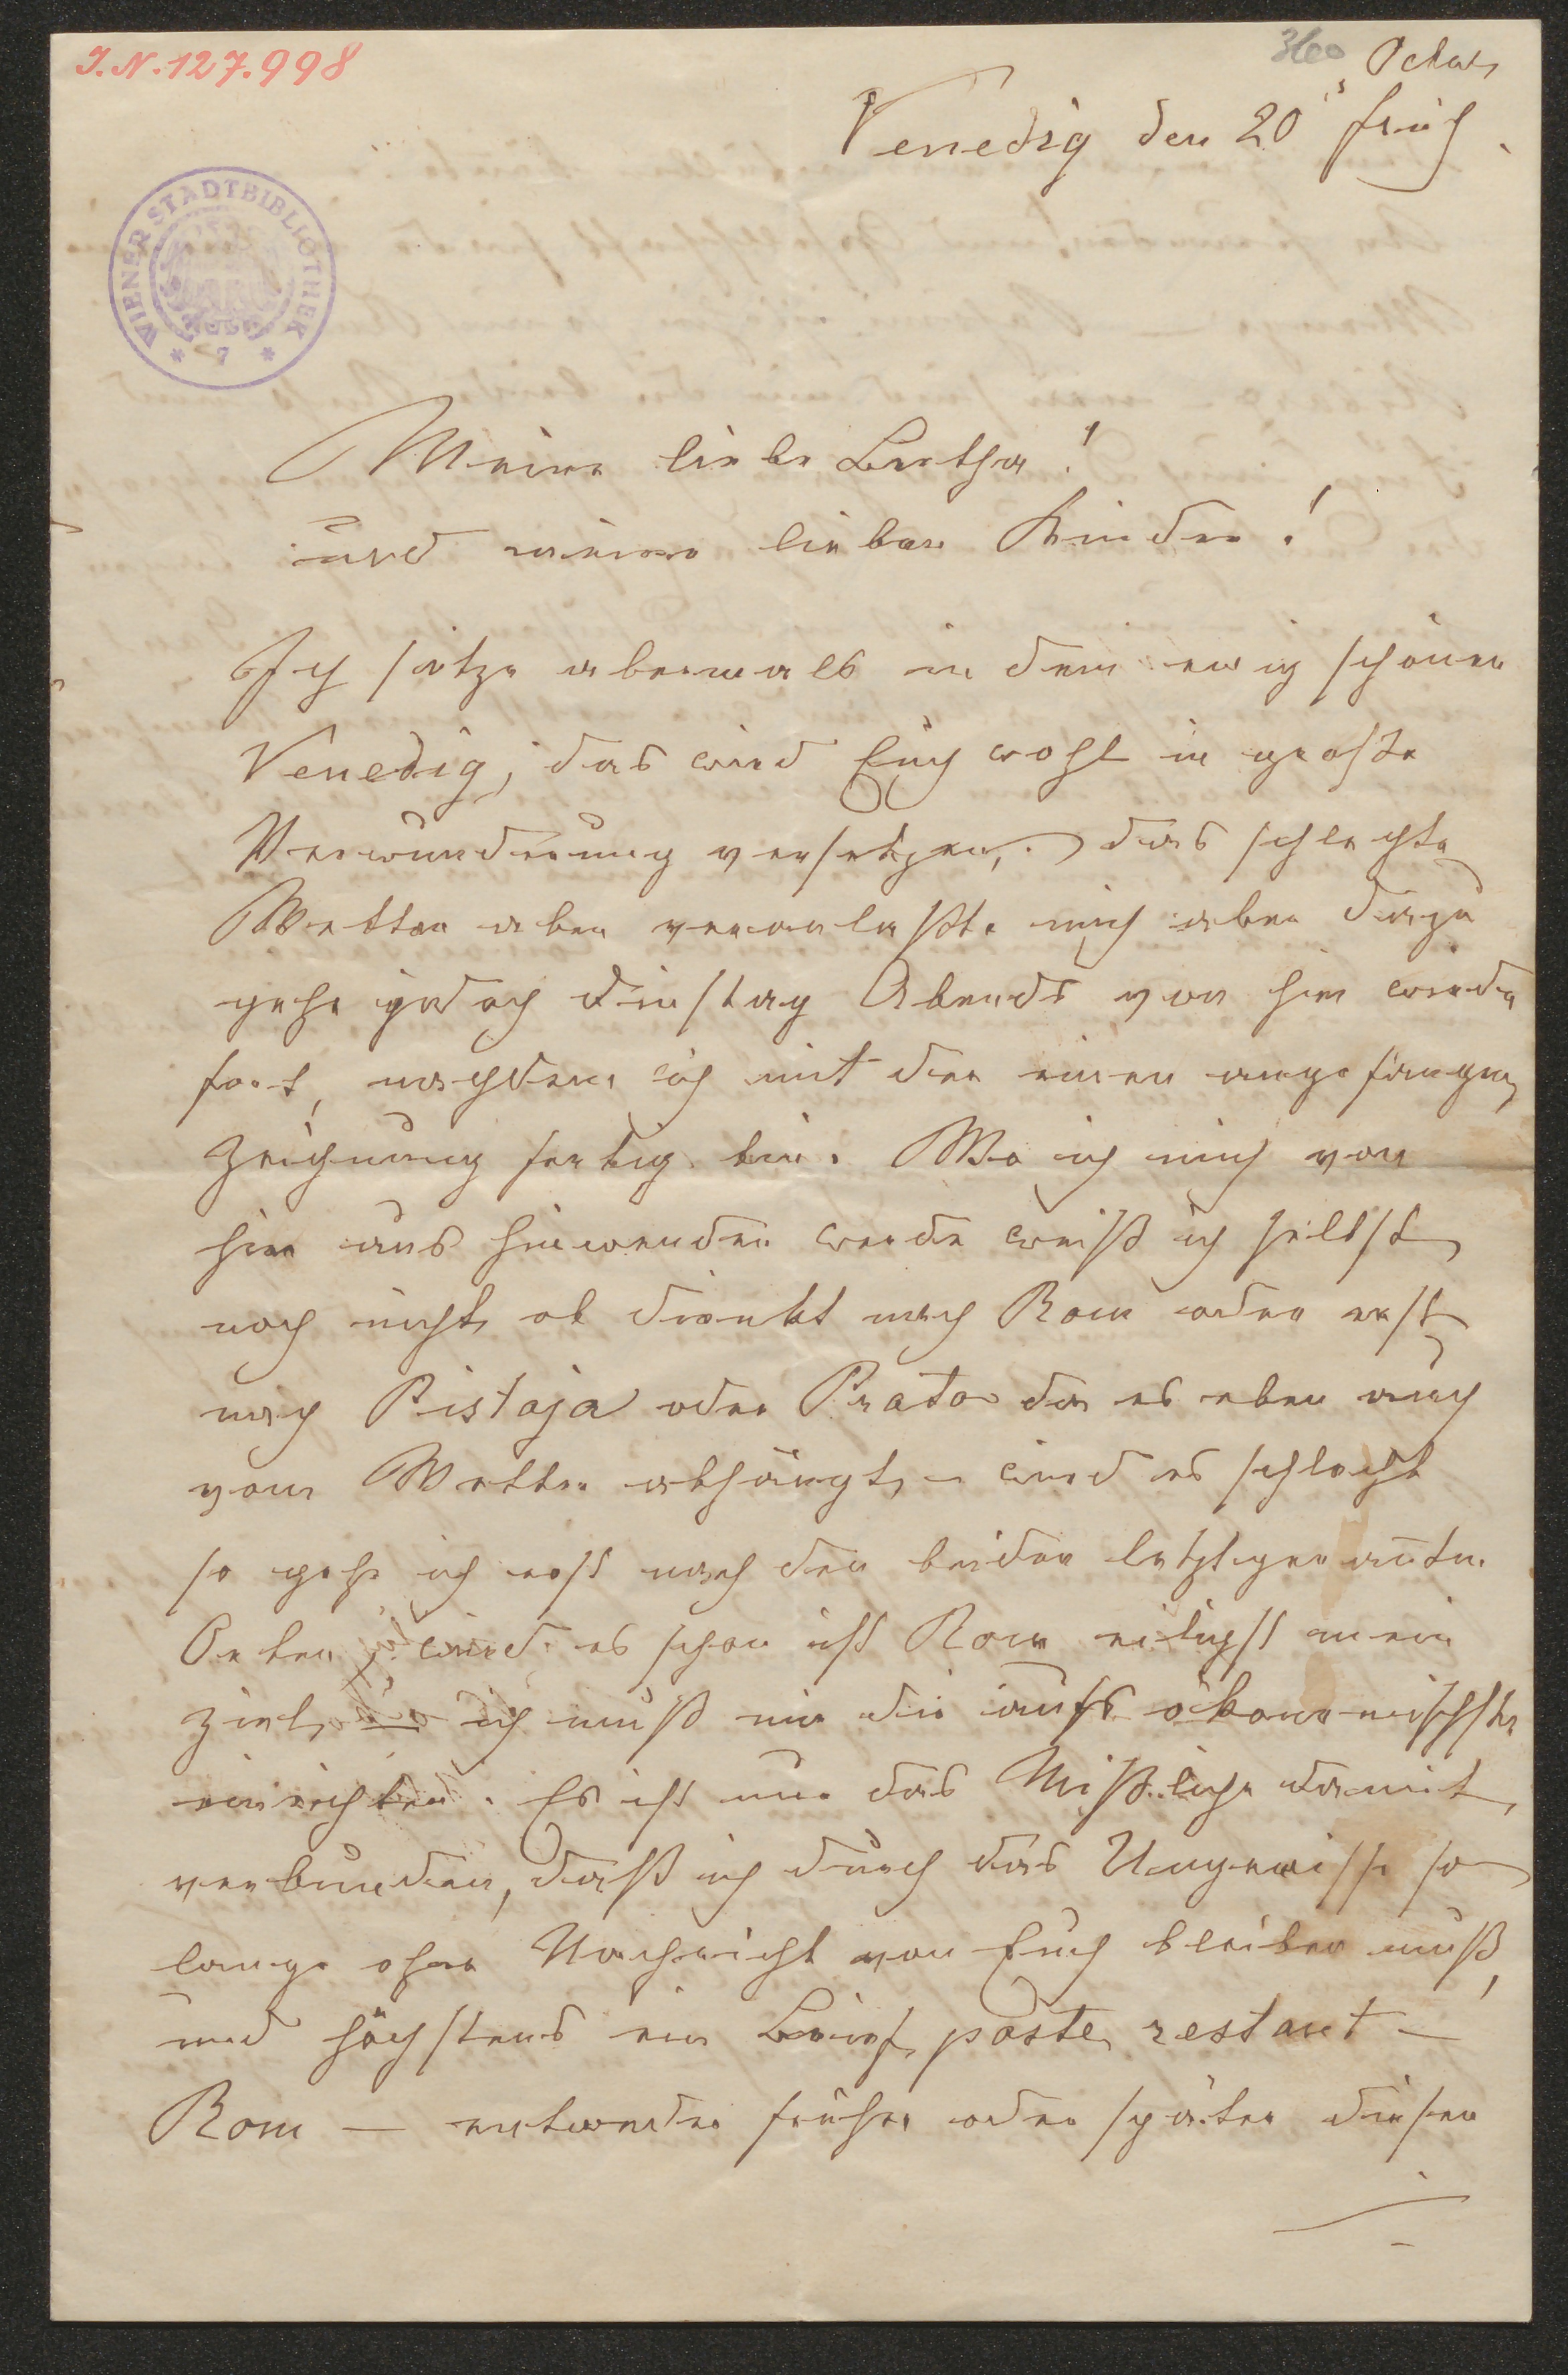 I.N. 127.998
360
Octob
Venedig den 20 früh
WIENER STADTBIBLIOTHEK
* 7 *
Meine liebe Bertha!
und meine lieben Kinder!
Ich sitze abermals in dem ewig schönen
Venedig, das wird Euch wohl in große
Verwunderung versetzen, das schlechte
Wetter aber veranlaßte mich aber dazu
gehe jedoch Dinstag Abends von hier wieder
fort, nachdem ich mit der einen angefangen
Zeichnung fertig bin. Wo ich mich von
hier aus hinwenden werde weiß ich selbst
noch nicht, ob direkt nach Rom oder erst
nach Pistoja oder Prato da es eben auch
vom Wetter abhängt, – wird es schlecht
so gehe ich erst nach den beiden letztgenanten
Orten, wird es schon ist Rom eiligst mein
Ziel, ich muß mir die aufs ökonomischste
einrichten. Es ist nur das Mißliche damit
verbunden, daß ich durch das Ungewisse so
lange ohne Nachricht von Euch bleiben muß,
und höchstens ein Brief, poste restant –
Rom – entweder früher oder später diesen